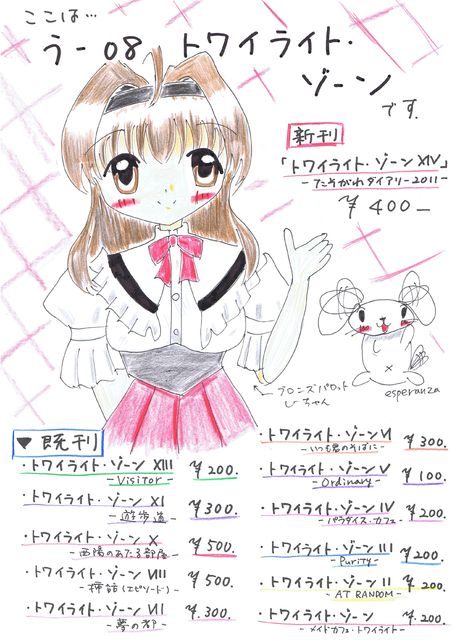 ここは…
う-08 トワイライト・
ゾーン
です.
新刊
「トワイライト・ゾーン XIV」
-たそがれダイアリー2011-
¥400-
esperanza
ブロンズパロット
ちゃん
▼既刊
・トワイライト・ゾーン XIII ¥200.
-Visitor-
・トワイライト・ゾーン XI ¥300.
-遊歩道-
・トワイライト・ゾーン X ¥500.
-西陽のあたる部屋-
・トワイライト・ゾーン VIII ¥500.
-挿話(エピソード)-
・トワイライト・ゾーン VII ¥300.
-夢の
・トワイライト・ゾーン VI ¥300.
-いつも君のそばに-
・トワイライト・ゾーン V ¥100.
-Ordinary-
・トワイライト・ゾーン IV ¥200.
-パラダイス・カフェ-
・トワイライト・ゾーン III ¥200.
-Purity-
・トワイライト・ゾーン II ¥200.
-AT RANDOM-
・トワイライト・ゾーン ¥200.
-メイドカフェ・トワイライト-